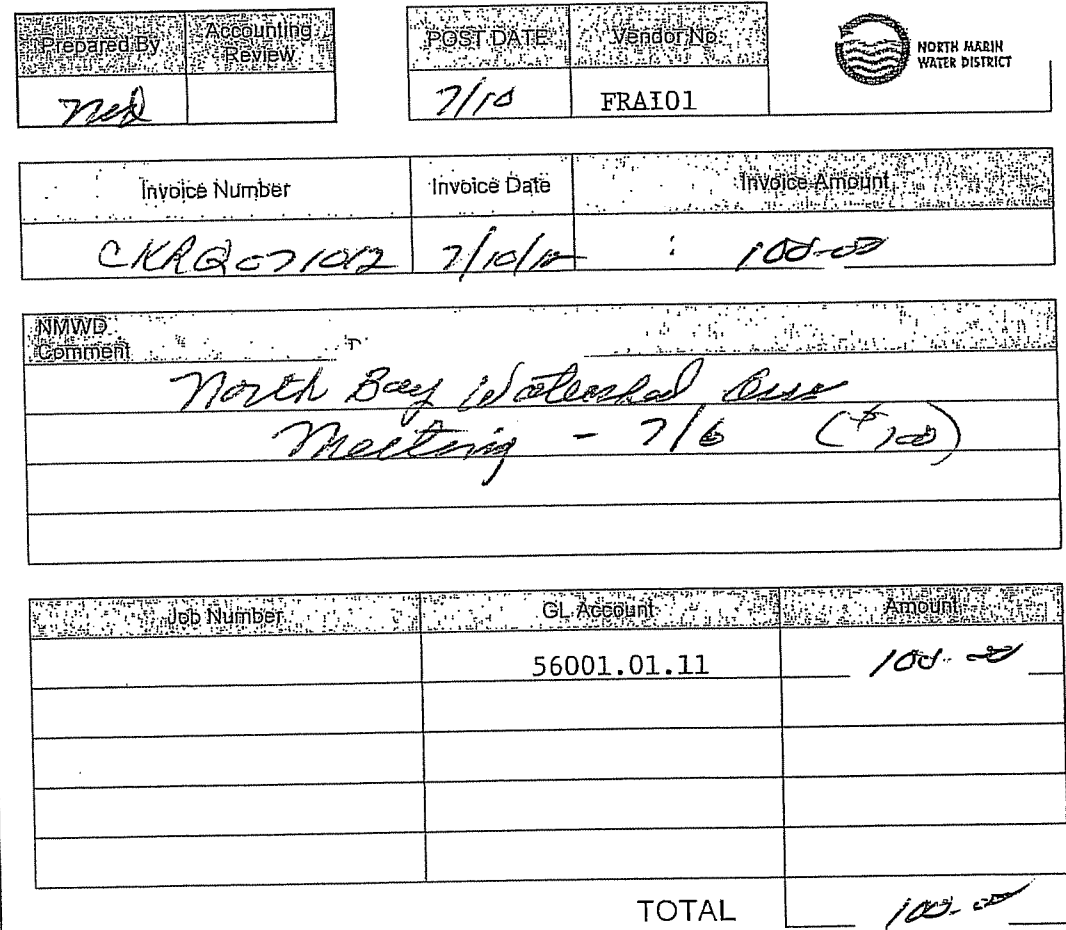 Prepared By Accounting Review POST DATE Vendor No. NORTH MARIN WATER DISTRICT
7/10 FRAI01
Invoice Number Invoice Date Invoice Amount
CKRQ071012 7/10/12 100.00
NMWD Comment
North Bay Watershed Assn
Meeting - 7/6 ($100)
Job Number GL Account Amount
56001.01.11 100.00
TOTAL 100.00